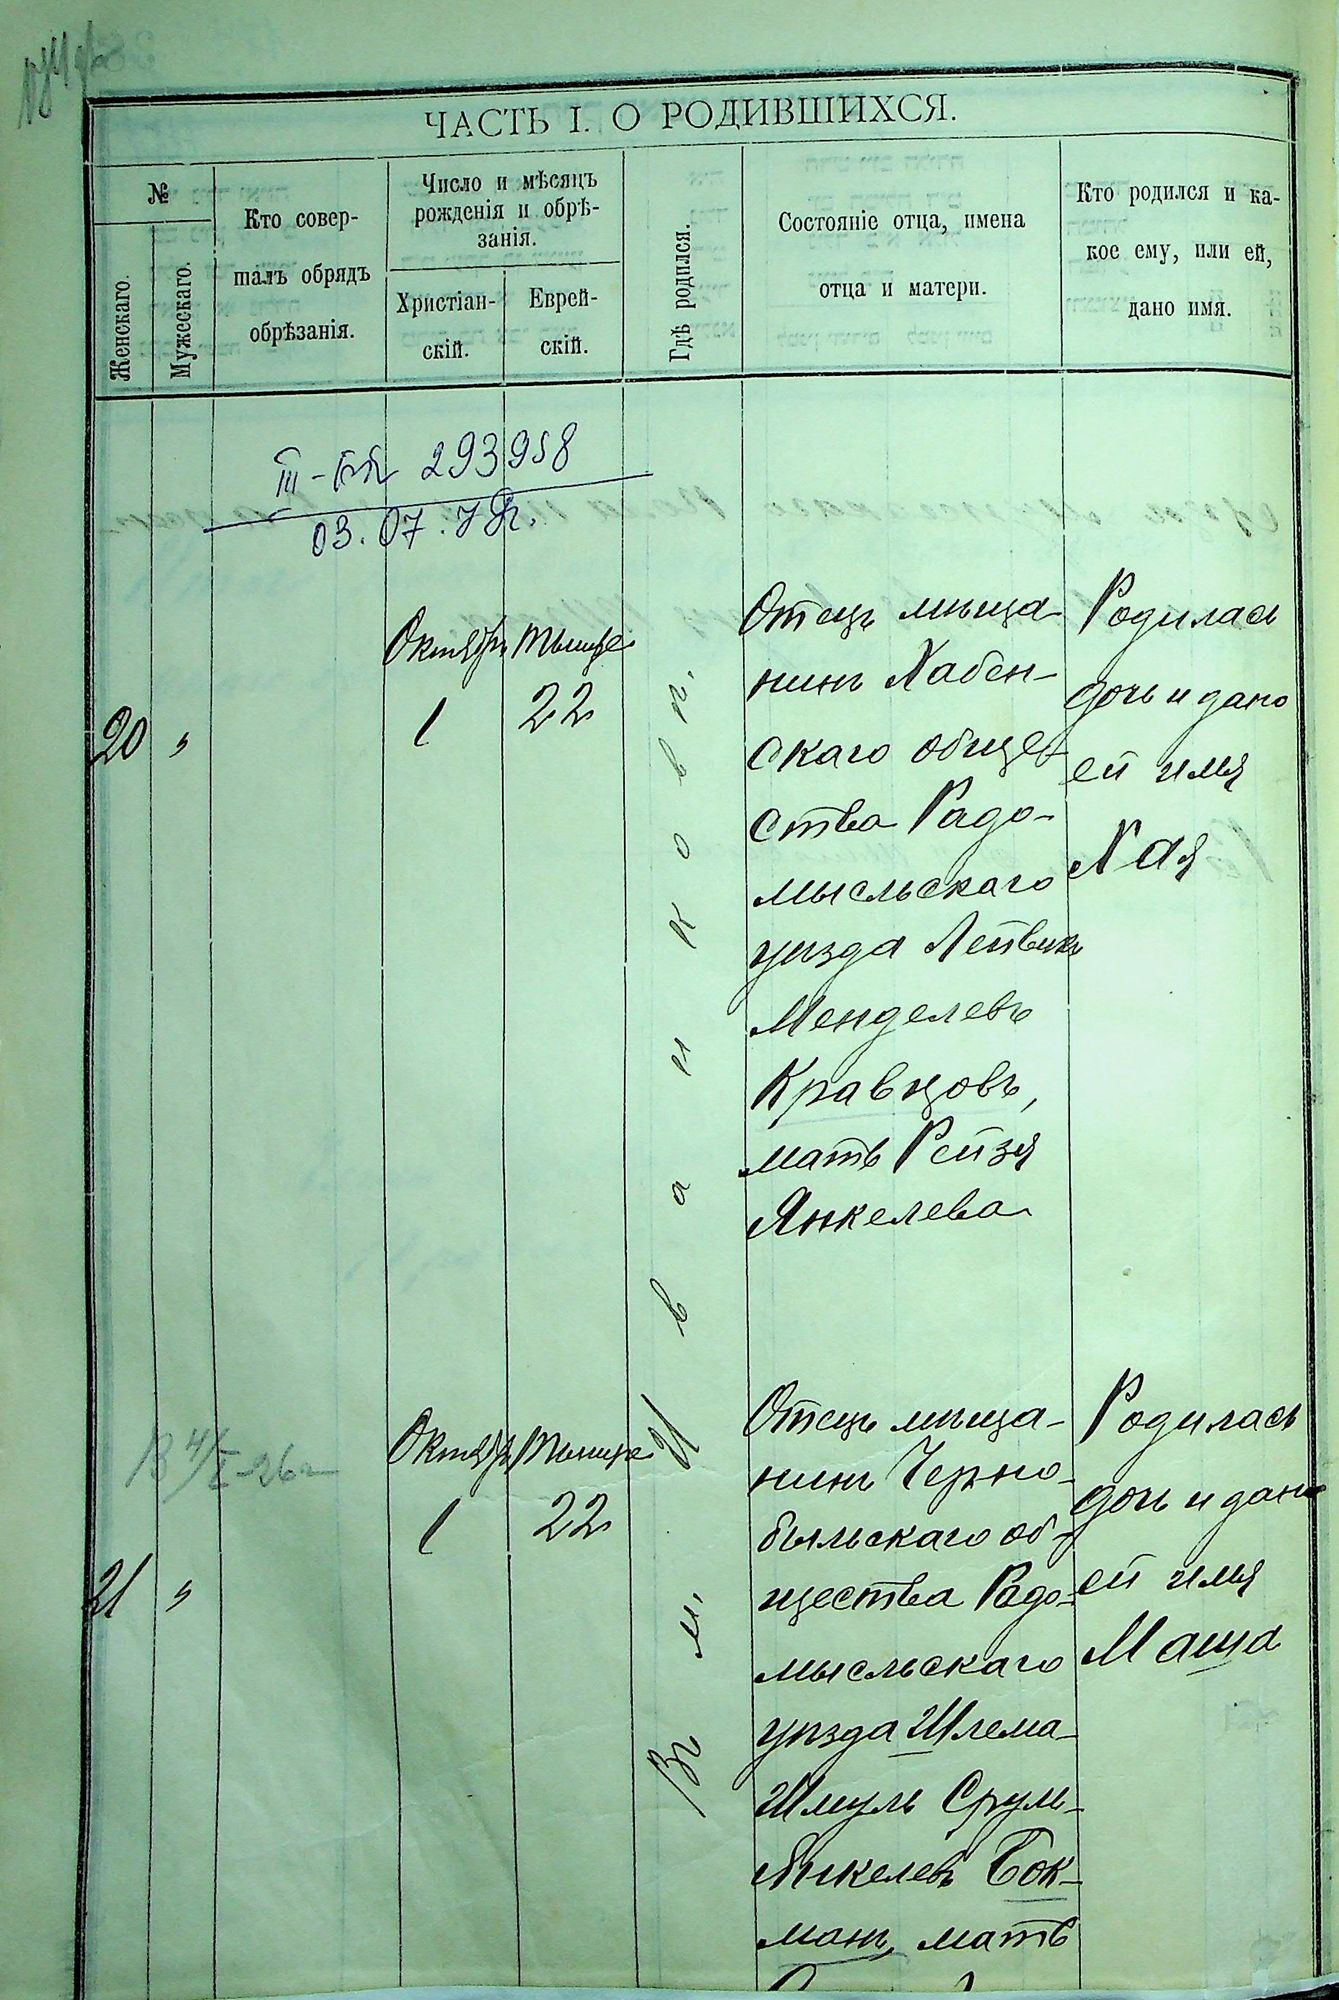 ЧАСТЬ I. О РОДИВШИХСЯ.
№
Женскаго.
Мужескаго.
Кто совер-
шалъ обрядъ
обрѣзанія.
Число и мѣсяцъ
рожденія и обрѣ-
занія.
Христіан-
скій.
Еврей-
скій.
Гдѣ родился.
Состояніе отца, имена
отца и матери.
Кто родился и ка-
кое ему, или ей,
дано имя.
293958
03.07.
20
"
Октября
1
Тышре
22
Въ м. Иванковѣ.
Отецъ мѣща-
нинъ Хабен-
скаго обще-
ства Радо-
мысльскаго
уѣзда Лейвикъ
Менделевъ
Кравцовъ,
мать Рейзя
Янкелева
Родилась
дочь и дано
ей имя
Хая
21
"
Октября
1
Тышре
22
Отецъ мѣща-
нинъ Черно-
быльскаго об-
щества Радо-
мысльскаго
уѣзда Шлема-
Шмуль Срулъ-
Янкелевъ Бок-
манъ, мать
Родилась
дочь и дано
ей имя
Маша